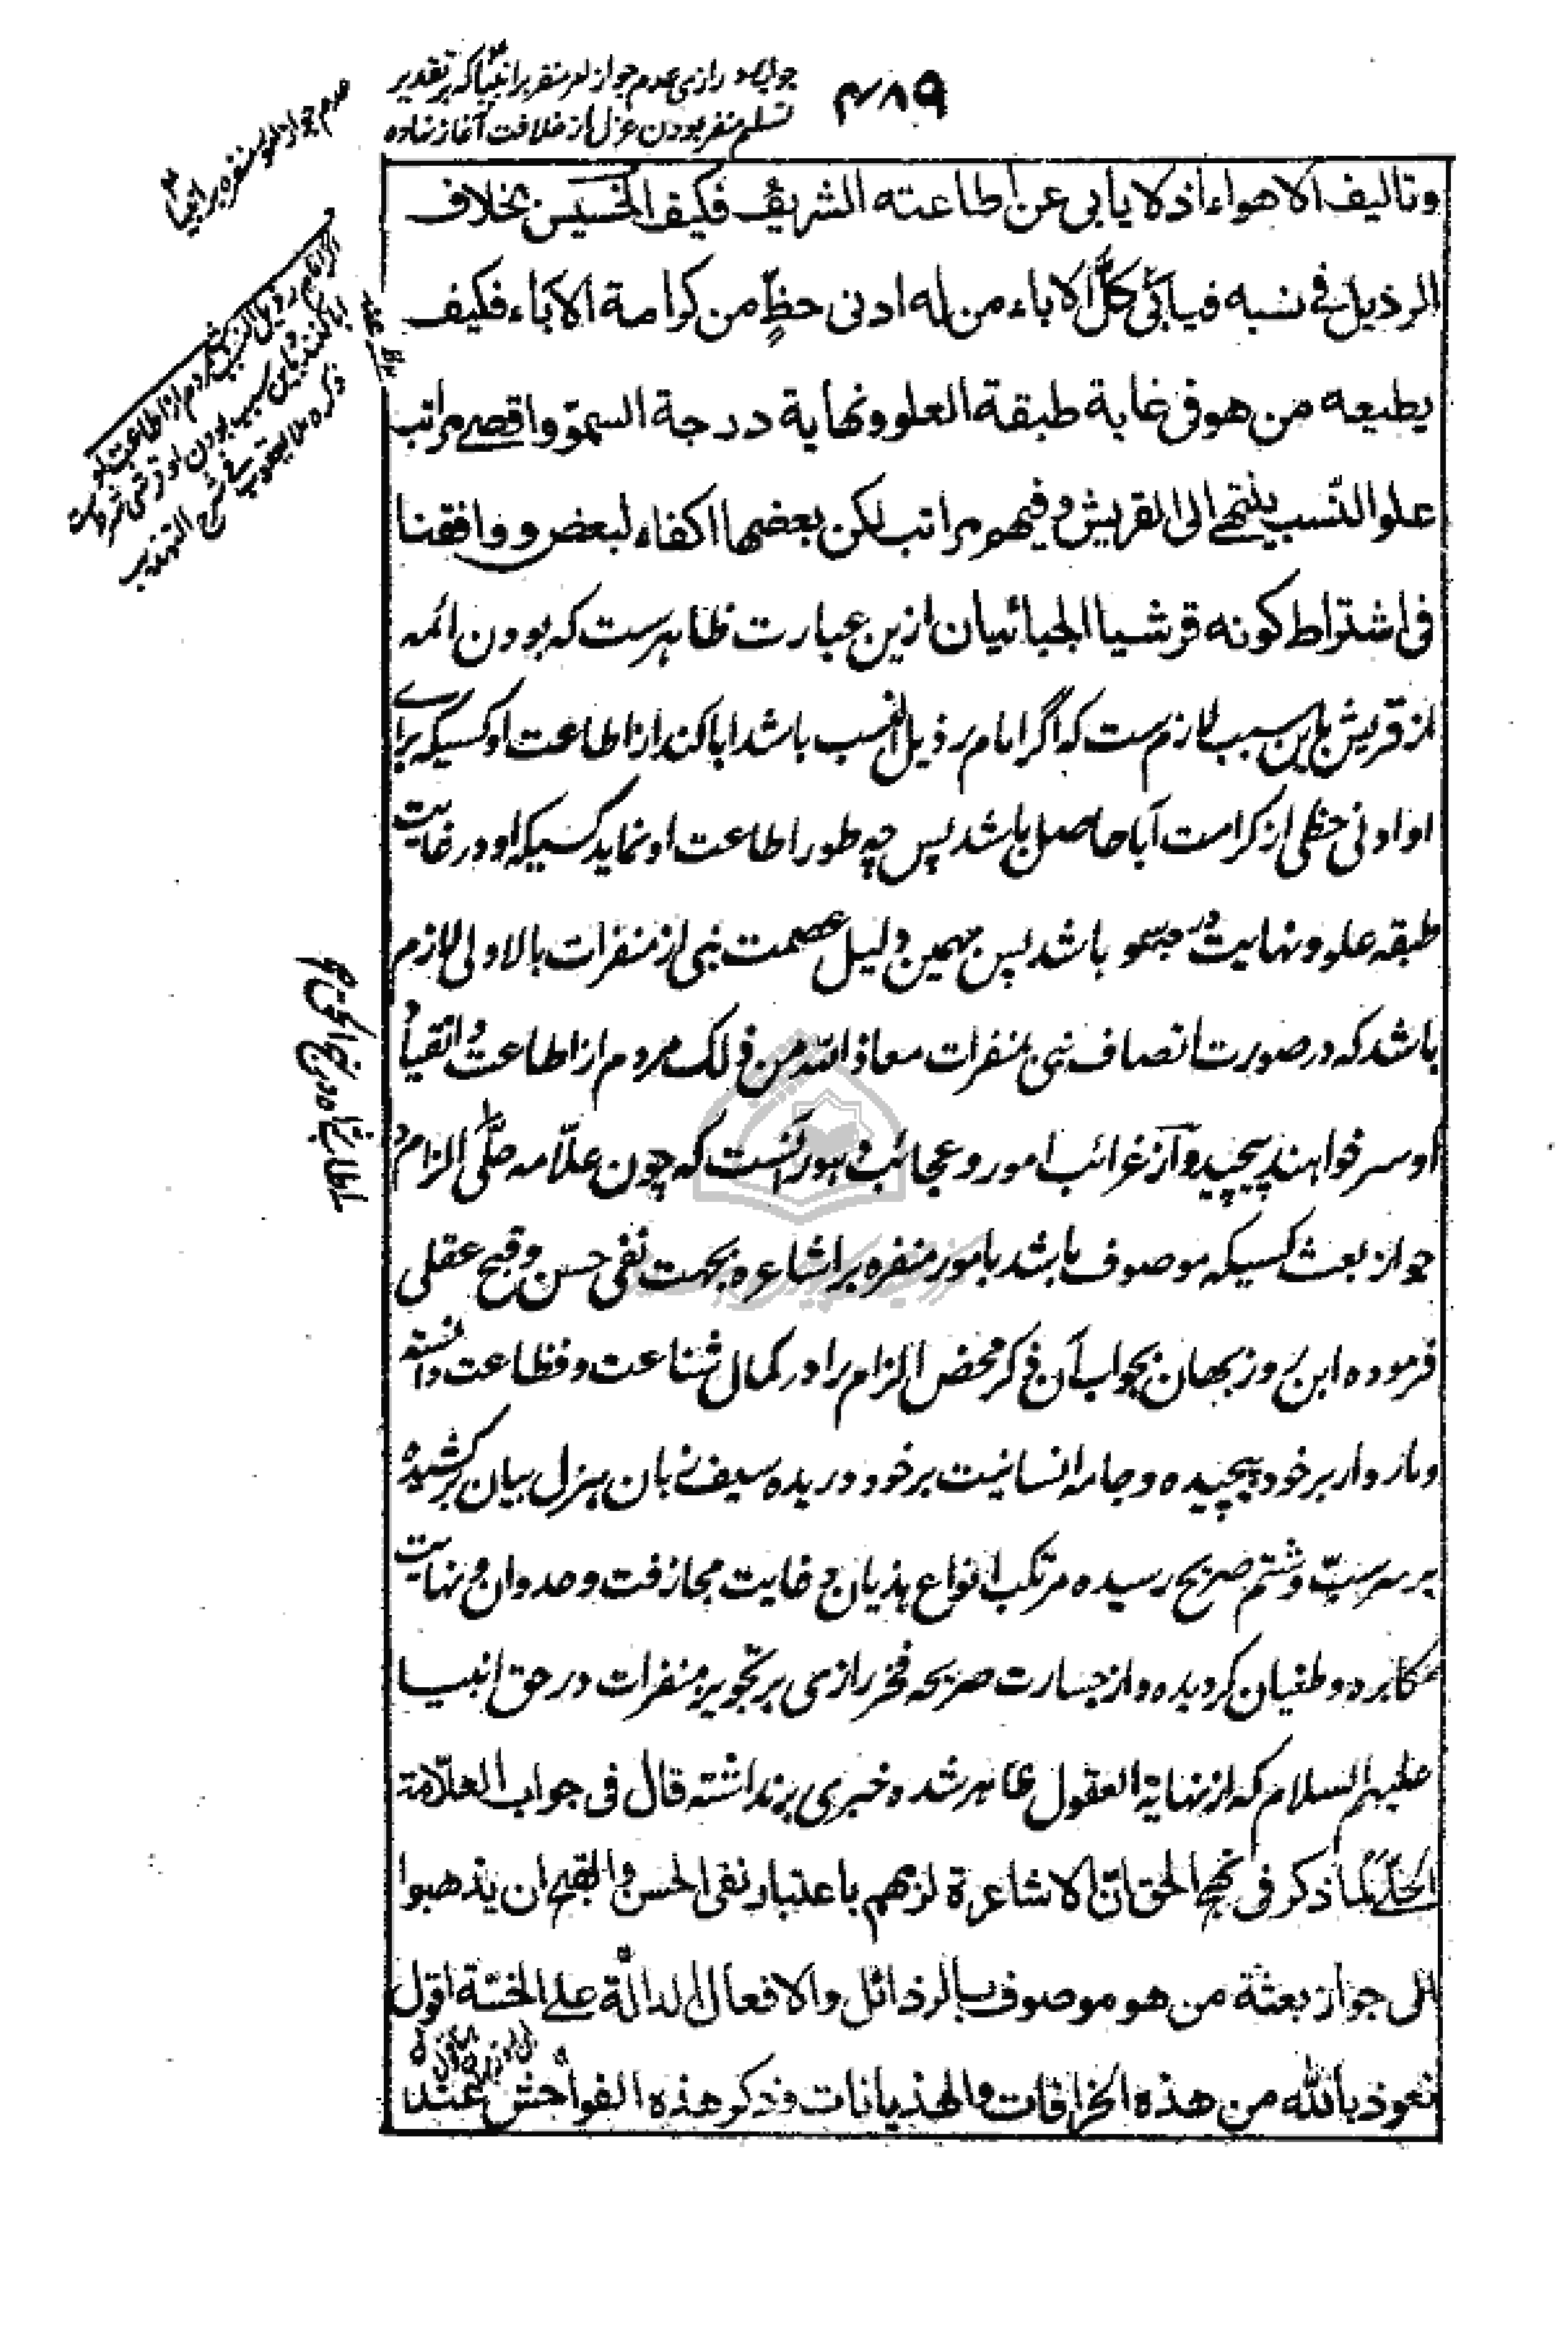 ۴۸۹
جواب رازی عدم جواز امر منفر بر انبیا که بر تقدیر
تسلیم منفر بودن عزل از خلافت آغاز نهاده
عدم جواز امور منفره بر انبیا
وتاليف الاهواء اذ لا يابى عن اطاعته الشريف فكيف الخسيس بخلاف
الرذيل فى نسبه فيابى كلّ الاباء من له ادنى حظّ من كرامة الآباء فكيف
يطيعه من هو فى غاية طبقة العلو ونهاية درجة السموّ واقصى مراتب
علو النّسب ينتهى الى القريش وفيهم مراتب لكن بعضها اكفاء لبعض ووافقنا
فى اشتراط كونه قرشيا الجبائيان ازين عبارت ظاهرست كه بودن ائمه
از قريش باين سبب لازم ست كه اگر امام رذيل النسب باشد ابا كند از اطاعت او كسيكه براے
او ادنى حظى از كرامت آبا حاصل باشد پس چه طور اطاعت او نمايد كسيكه او در غايت
طبقه علو و نهايت درجه سمو باشد پس بهمين دليل عصمت نبى از منفرات بالاولى لازم
باشد كه در صورت اتصاف نبى بمنفرات معاذ الله من ذلك مردم از اطاعت و انقياد
او سر خواهند پيچيد و از غرائب امور و عجائب دهور آنست كه چون علّامه حلّى الزام
جواز بعث كسيكه موصوف باشد بامور منفره بر اشاعره بجهت نفى حسن و قبح عقلى
فرموده ابن روزبهان بجواب آن ذكر محض الزام را در كمال شناعت و فظاعت دانسته
و مار وار بر خود پيچيده و جامه انسانيت بر خود دريده سيف زبان بهزل بيان بركشيده
بر سر سبّ و شتم صريح رسيده مرتكب انواع هذيان و غايت مجازفت و عدوان و نهايت
مكابره و طغيان گرديده و از جسارت صريحه فخر رازى بر تجويز منفرات در حق انبيا
عليهم السلام كه از نهاية العقول ظاهر شده خبرى برنداشته قال فى جواب العلّامة
الحلّى لما ذكر فى نهج الحق انّ الاشاعرة لزمهم باعتبار نفى الحسن والقبح ان يذهبوا
الى جواز بعثة من هو موصوف بالرذائل والافعال الدالّة على الخسّة اقول
نعوذ بالله من هذه الخرافات والهذيانات وذكر هذه الفواحش عند